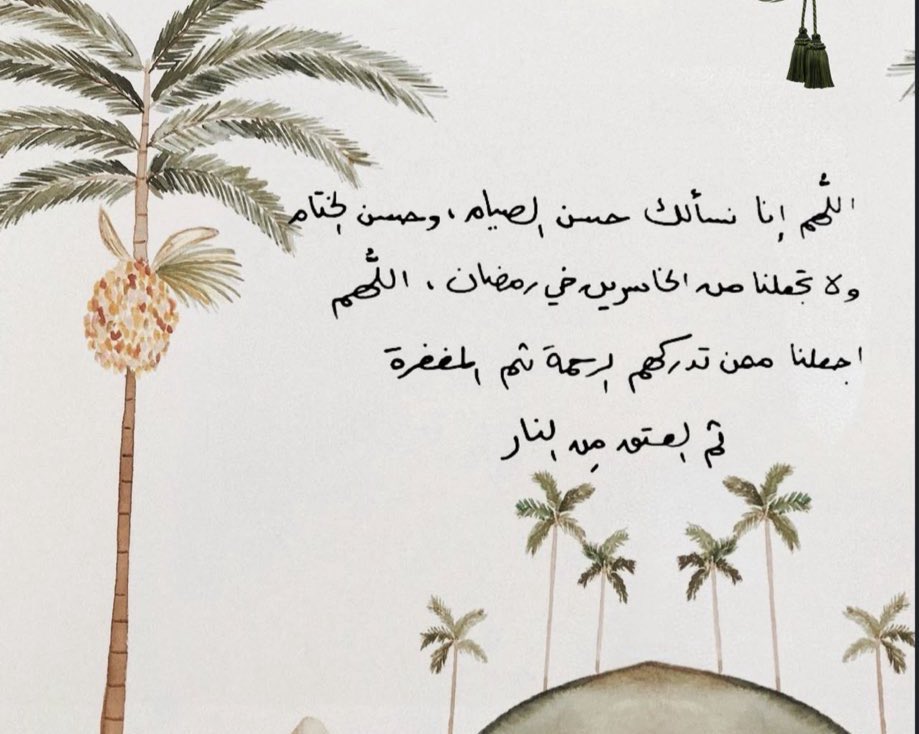 اللهم إنا نسألك حسن الصيام، وحسن الختام
ولا تجعلنا من الخاسرين في رمضان، اللهم
اجعلنا ممن تدركهم الرحمة ثم المغفرة
ثم العتق من النار